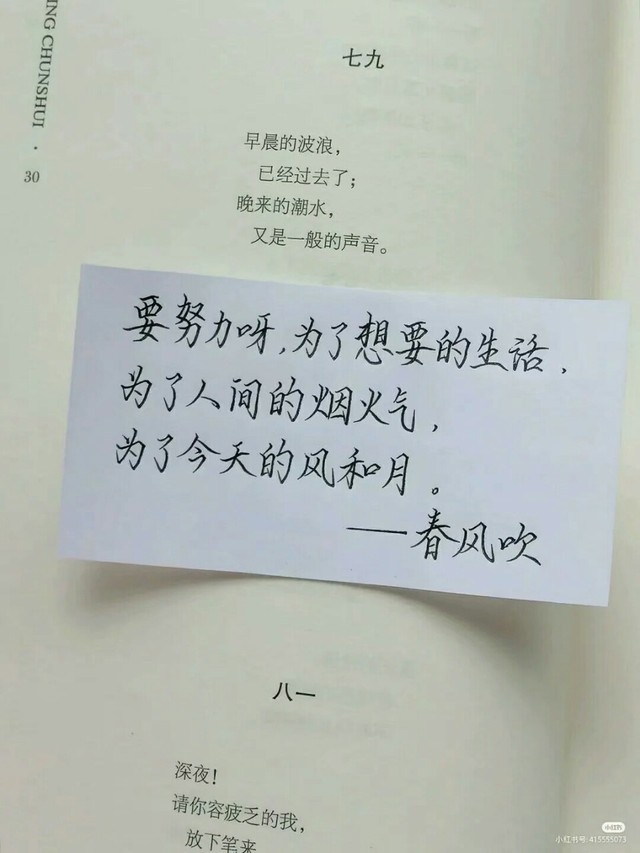 ING CHUNSHUI ·
30
七九
早晨的波浪，
已经过去了；
晚来的潮水，
又是一般的声音。
要努力呀，为了想要的生活，
为了人间的烟火气，
为了今天的风和月。
——春风吹
八一
深夜！
请你容疲乏的我，
放下笔来
小红书
小红书号:415555073